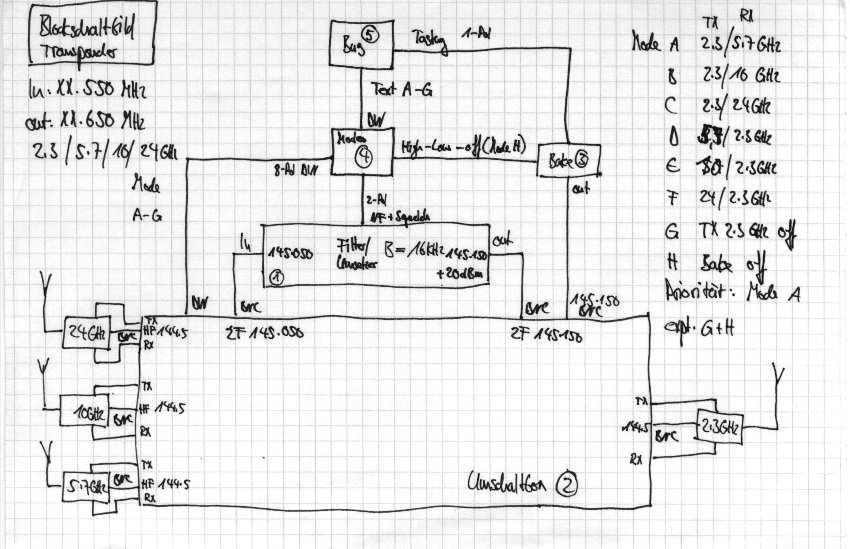 Blockschaltbild
Transponder
In: XX.550 MHz
out: XX.650 MHz
2.3 / 5.7 / 10 / 24 GHz
Mode
A-G
5
Tasten
1-Pol
Text A-G
DIN
4
8-Pol DIN
High-Low-off (Mode H)
Bake 3
out
2-Pol
NF + Squelch
In
145.050
Filter/
Umsetzer
B = 16 KHz
145.150
+20dBm
1
out
DIN
BNC
ZF 145.050
BNC
ZF 145.150
145.150
BNC
TX RX
Mode A 2.3/5.7 GHz
B 2.3/10 GHz
C 2.3/24 GHz
D 5.7/2.3 GHz
E 10/2.3 GHz
F 24/2.3 GHz
G TX 2.3 GHz off
H Bake off
Priorität: Mode A
expt. G+H
24 GHz
BNC
TX
HF 144.5
RX
10 GHz
BNC
TX
HF 144.5
RX
5.7 GHz
BNC
TX
HF 144.5
RX
TX
144.5
BNC
RX
2.3 GHz
Umschaltbox 2